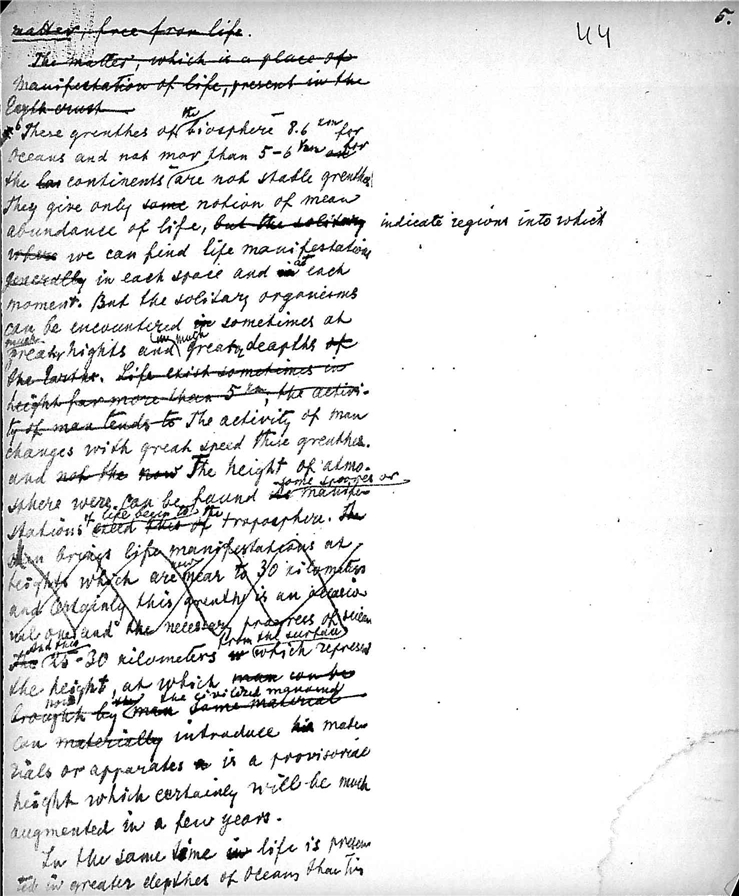 5.
44
matter, free from life.
The matter, which is a place of
manifestation of life, present in the
Earth crust
These grenthes of the biosphere 8.6 km for
Oceans and not mor than 5-6 km for
the continents are not stable grenthes
They give only some notion of mean
abundance of life, but the solitary indicate regions into which
where we can find life manifestations
generally in each space and at each
moment. But the solitary organisms
can be encountered in sometimes at
much greaty hights and in much greaty depths of
the Earths. Life exist sometimes in
height far more than 5 km, the activi-
ty of man tends to The activity of man
changes with great speed these grenthes.
and not the now The height of atmo-
sphere were can be found some spores or manife-
stations of life begin to the need this of troposphere. The
men brings life manifestations at
heights which are now near to 30 kilometers
and certainly this grenthe is an occasio
nal one and the necessary progress of scien
The and this 25-30 kilometers from the surface which represen
the height, at which man can be
brought by man some material now the civilized mankind
can materially introduce his mate-
rials or apparates is a provisorial
height which certainly will be much
augmented in a few years.
In the same time in life is presen
ted in greater depthes of Oceans than